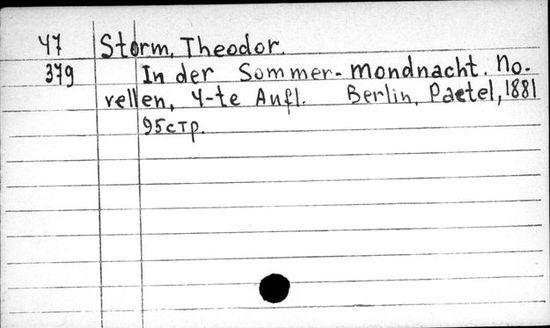 47 Storm, Theodor.
379 In der Sommer-mondnacht. No-
vellen, 4-te Aufl. Berlin, Paetel, 1881
95стр.